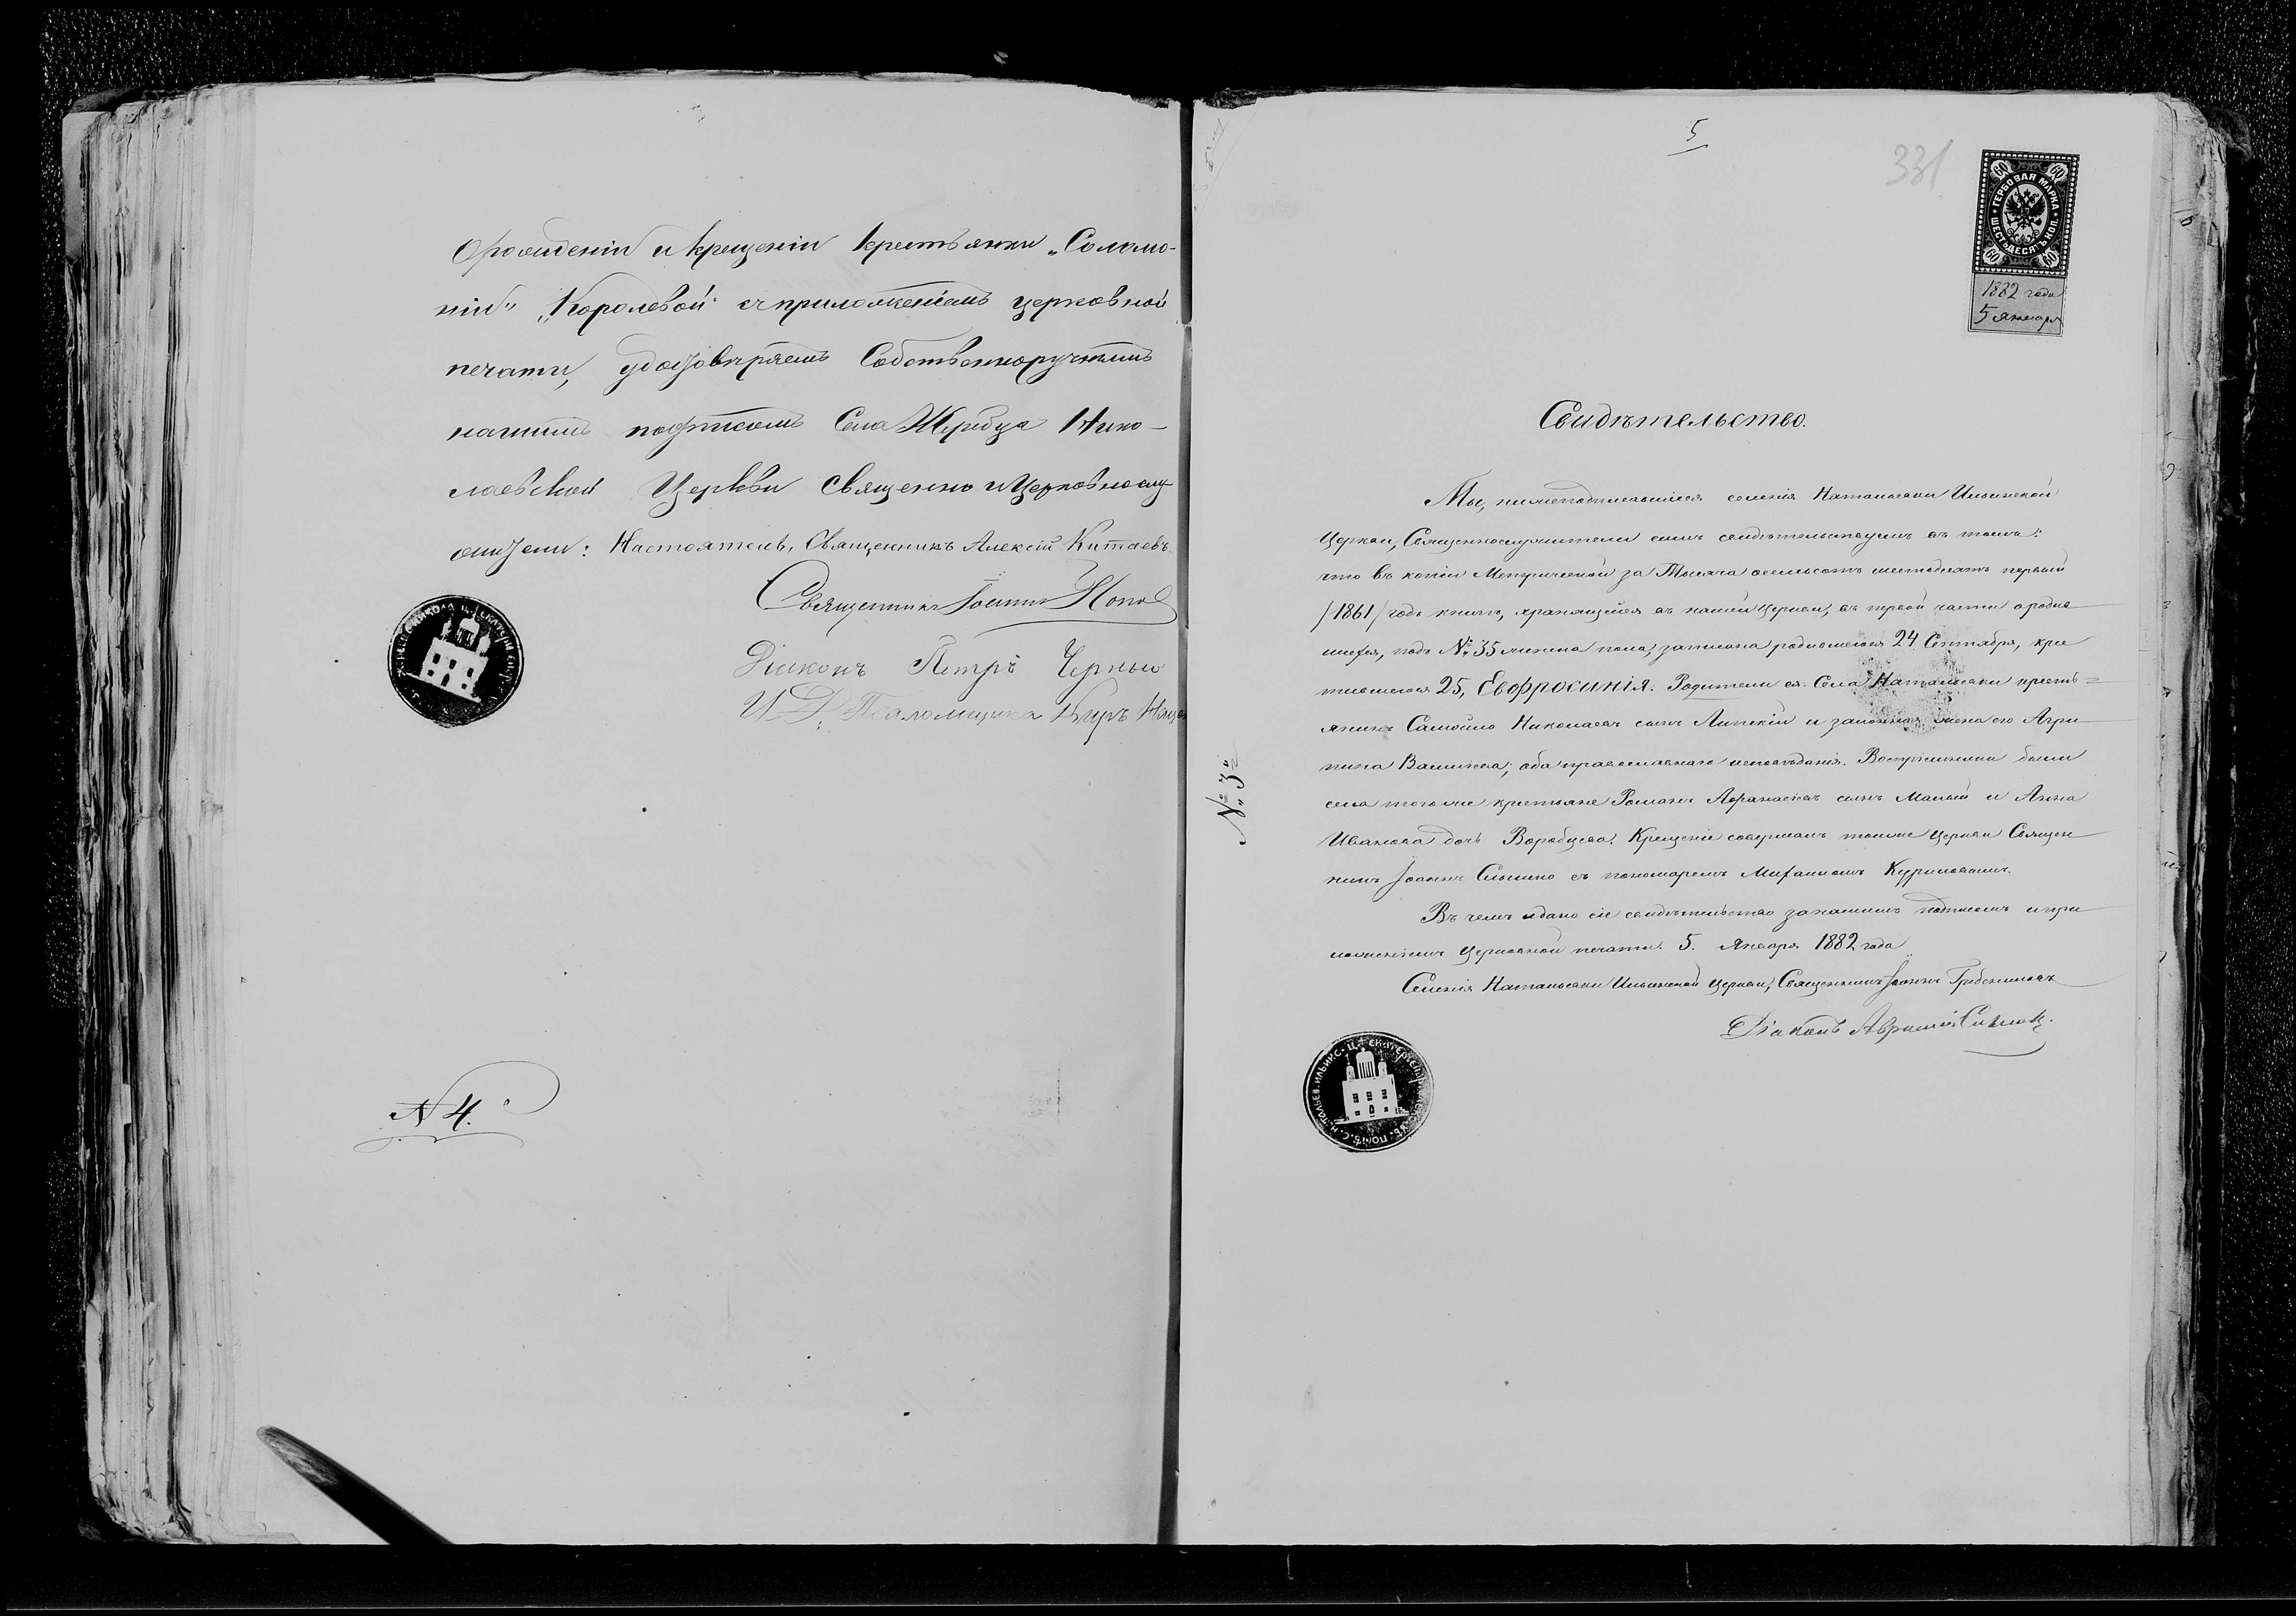 о рожденіи и крещеніи крестьянки „Соломо-
ніи" „Королевой" съ приложеніемъ церковной
печати, удостовѣряемъ Собственноручнымъ
нашимъ подписомъ Села Жеребца Нико-
лаевской Церкви Священно и Церковнослу
жители: Настоятель, Священникъ Алексій Китаевъ
Священникъ Іоаннъ
Діаконъ Петръ Черны
И. Д. Псаломщика Киръ
N 4.
5
331
ГЕРБОВАЯ МАРКА
ШЕСТЬДЕСЯТЪ КОП.
60 60 60 60
1882 года
5 Января
Свидѣтельство.
Мы, нижеподписавшіеся селенія Натальевки Ильинской
Церкви, Священнослужители симъ свидѣтельствуемъ въ томъ:
что въ копіи Метрической за Тысяча восемьсотъ шестьдесятъ первый
/1861/ годъ книги, хранящейся въ нашей Церкви, въ первой части о родив
шихся, подъ № 35 женска пола, записана родившеюся 24 Сентября, кре
тившеюся 25, Евфросинія. Родители ея: Села Натальевки кресть=
янинъ Самойло Николаевъ сынъ Липскій и законная жена его Агри
пина Ваниѣева; оба православнаго исповѣданія. Воспріемники были
села того же крестьяне Романъ Афанасіевъ сынъ Малый и Анна
Иванова дочь Воробцева. Крещеніе совершалъ тойже Церкви Священ
никъ Іоаннъ съ пономаремъ
Въ чемъ и дано сіе свидѣтельство за нашимъ подписомъ и при
ложеніемъ Церковной печати. 5. Января 1882 года
Селенія Натальевки Ильинской Церкви, Священникъ Іоаннъ Гребенниковъ
Діаконъ
№ 3й